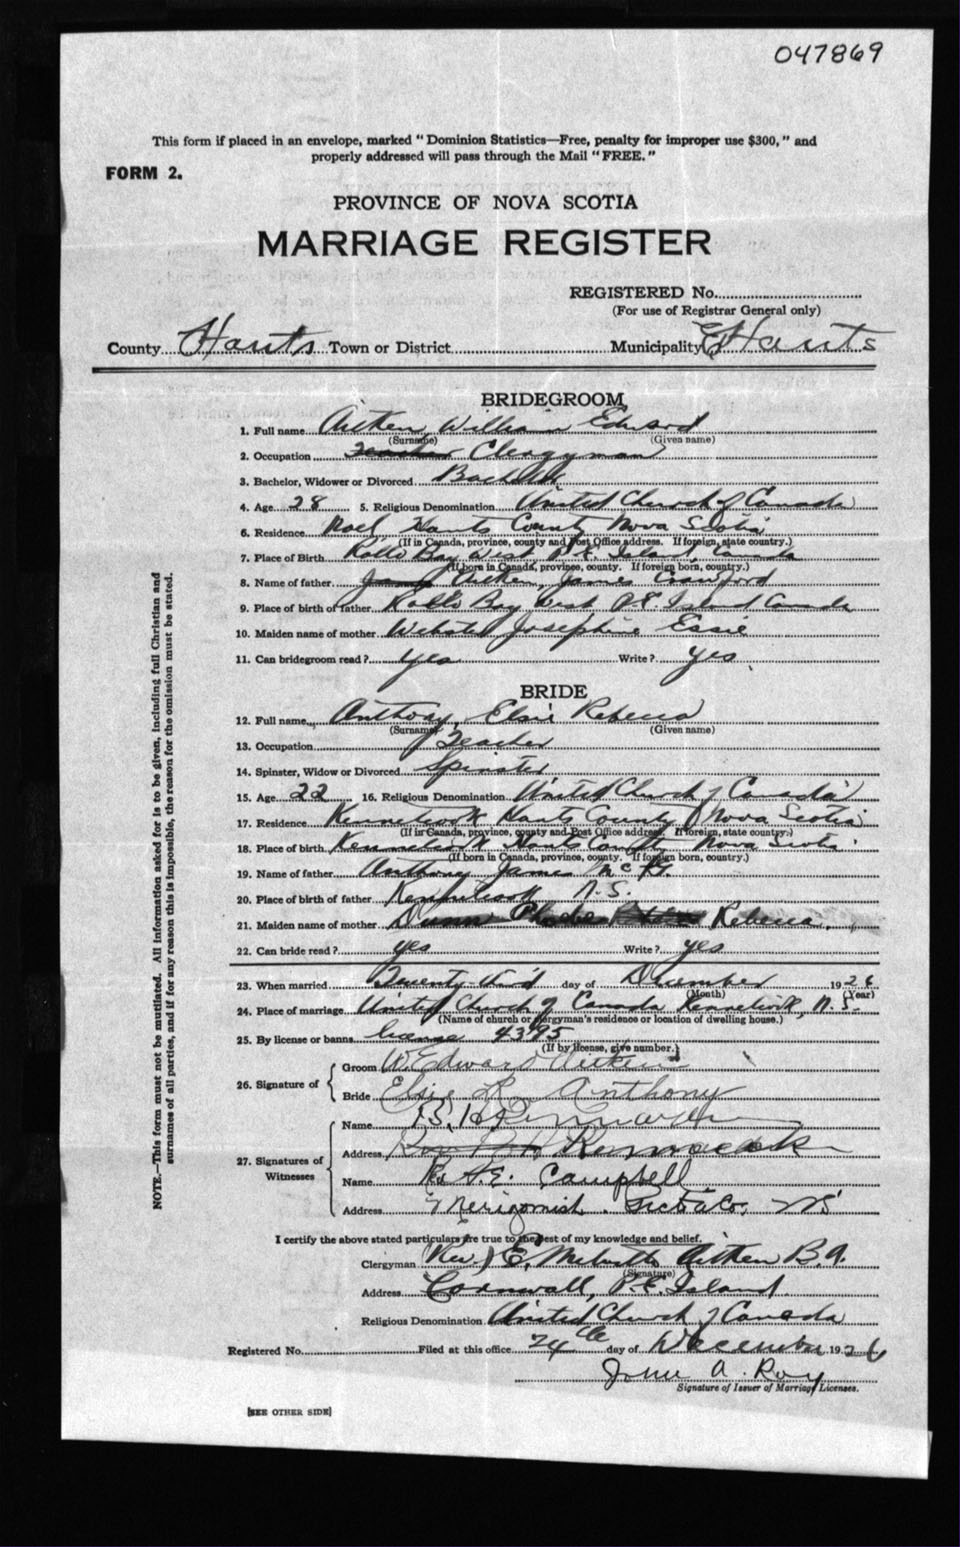 047869
This form if placed in an envelope, marked "Dominion Statistics—Free, penalty for improper use $300," and
properly addressed will pass through the Mail "FREE."
FORM 2.
PROVINCE OF NOVA SCOTIA
MARRIAGE REGISTER
REGISTERED No.
(For use of Registrar General only)
County Hants Town or District Municipality E Hants
BRIDEGROOM
1. Full name Aitken, William Edward
(Surname) (Given name)
2. Occupation Clergyman
3. Bachelor, Widower or Divorced Bachelor
4. Age 28 5. Religious Denomination United Church of Canada
6. Residence Noel Hants County Nova Scotia
(If in Canada, province, county and Post Office address. If foreign, state country.)
7. Place of Birth Rollo Bay West P.E. Island Canada
(If born in Canada, province, county. If foreign born, country.)
8. Name of father Aitken, James Crawford
9. Place of birth of father Rollo Bay West P.E. Island Canada
10. Maiden name of mother Webster Josephine Essie
11. Can bridegroom read? yes Write? yes
BRIDE
12. Full name Anthony, Elsie Rebecca
(Surname) (Given name)
13. Occupation Teacher
14. Spinster, Widow or Divorced Spinster
15. Age 22 16. Religious Denomination United Church of Canada
17. Residence Kennetcook Hants County Nova Scotia
(If in Canada, province, county and Post Office address. If foreign, state country.)
18. Place of birth Kennetcook Hants County Nova Scotia
(If born in Canada, province, county. If foreign born, country.)
19. Name of father Anthony James Mc
20. Place of birth of father Kennetcook N.S.
21. Maiden name of mother Phoebe Rebecca
22. Can bride read? yes Write? yes
23. When married Twenty-third day of December 1926
(Month) (Year)
24. Place of marriage United Church of Canada Kennetcook, N.S.
(Name of church or clergyman's residence or location of dwelling house.)
25. By license or banns license 4395
(If by license, give number.)
26. Signature of
Groom W Edward Aitken
Bride Elsie R. Anthony
27. Signatures of
Witnesses
Name
Address
Name Rev A.E. Campbell
Address Merigomish, Pictou Co. NS
I certify the above stated particulars are true to the best of my knowledge and belief.
Clergyman (Rev.) E. Aitken B.A.
(Signature)
Address Cornwall, P.E. Island
Religious Denomination United Church of Canada
Registered No. Filed at this office 24th day of December 1926
John A. Roy
Signature of Issuer of Marriage Licenses.
[SEE OTHER SIDE]
NOTE.—This form must not be mutilated. All information asked for is to be given, including full Christian and
surnames of all parties, and if for any reason this is impossible, the reason for the omission must be stated.